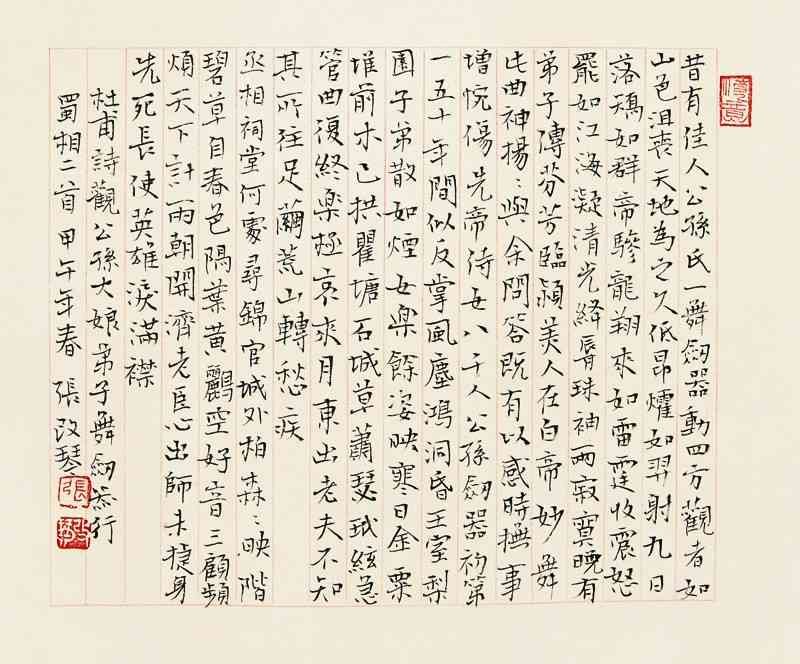 昔有佳人公孫氏一舞劒器動四方觀者如
山色沮喪天地為之久低昂㸌如羿射九日
落矯如群帝驂龍翔來如雷霆收震怒
罷如江海凝清光絳脣珠袖兩寂寞晚有
弟子傳芬芳臨潁美人在白帝妙舞
此曲神揚〻與余問答既有以感時撫事
增惋傷先帝侍女八千人公孫劒器初第
一五十年間似反掌風塵鴻洞昏王室梨
園子弟散如煙女樂餘姿映寒日金粟
堆前木已拱瞿塘石城草蕭瑟玳絃急
管曲復終樂極哀來月東出老夫不知
其所往足繭荒山轉愁疾
丞相祠堂何處尋錦官城外柏森〻映階
碧草自春色隔葉黃鸝空好音三顧頻
煩天下計兩朝開濟老臣心出師未捷身
先死長使英雄淚滿襟
杜甫詩觀公孫大娘弟子舞劒器行
蜀相二首 甲午年春 張改琴
張